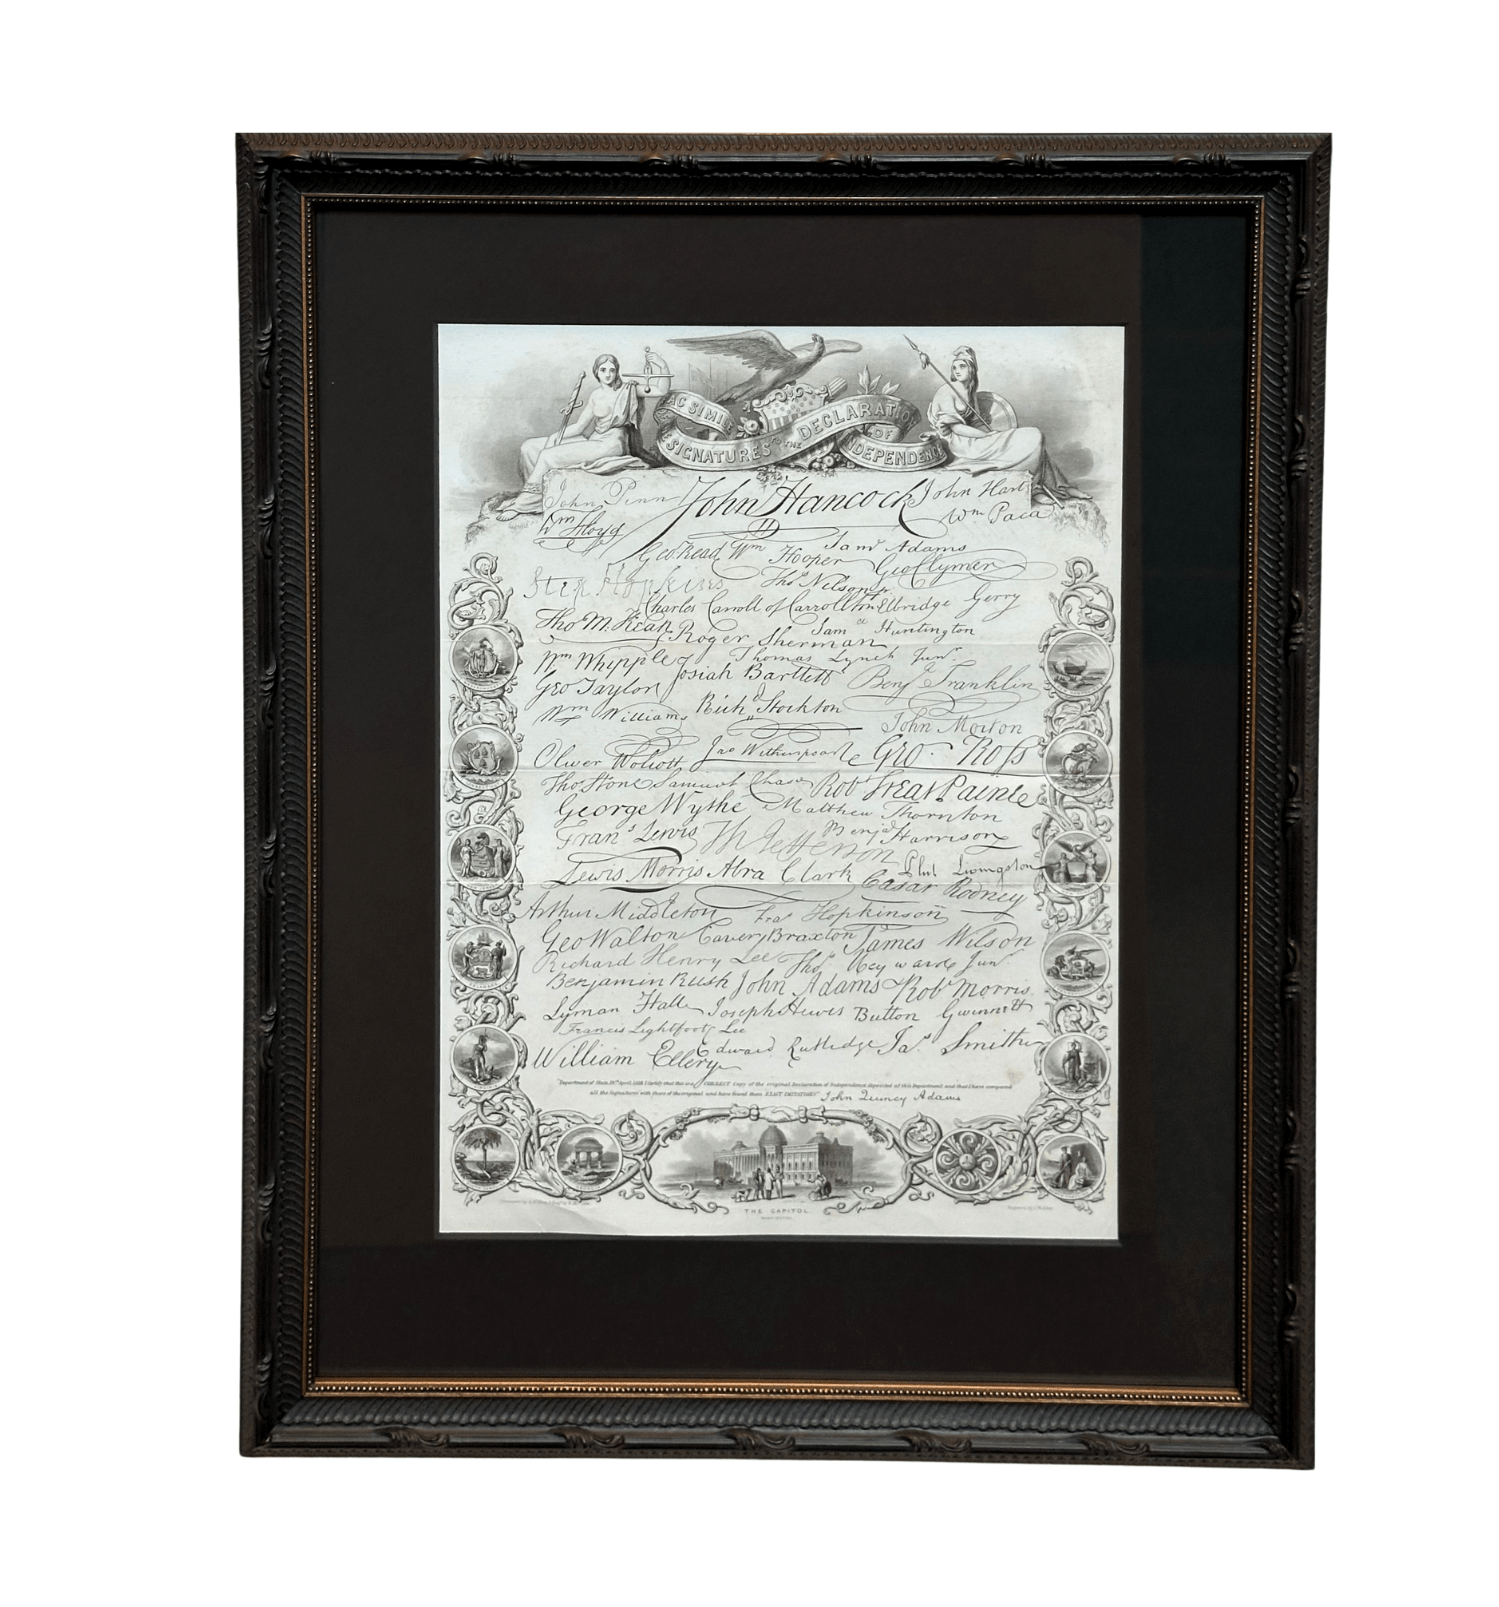 FAC SIMILE
SIGNATURES TO THE DECLARATION OF INDEPENDENCE
John Penn John Hancock John Hart
Wm Floyd Wm Paca
Geo Read Wm Hooper Saml Adams
Geo Clymer
Step Hopkins Thos Nelson jr.
Charles Carroll of Carrollton Elbridge Gerry
Tho M. Kean Roger Sherman Saml Huntington
Wm Whipple Thomas Lynch Junr.
Josiah Bartlett Benj Franklin
Geo Taylor
Wm Williams Richd Stockton John Morton
Oliver Wolcott Jno Witherspoon Geo. Ross
Thos Stone Samuel Chase Robt Treat Paine
George Wythe Matthew Thornton
Frans Lewis Th Jefferson Benja Harrison
Lewis Morris Abra Clark Phil Livingston
Cæsar Rodney
Arthur Middleton Fras Hopkinson
Geo Walton Carter Braxton James Wilson
Richard Henry Lee Thos Heyward Junr.
Benjamin Rush John Adams Robt Morris
Lyman Hall Joseph Hewes Button Gwinnett
Francis Lightfoot Lee
William Ellery Edward Rutledge Jas Smith
Department of State, April, I Certify that this is a CORRECT Copy of the original Declaration of Independence deposited at this Department and that I have compared
all the signatures with those of the original and have found them EXACT IMITATIONS" John Quincy Adams
THE CAPITOL